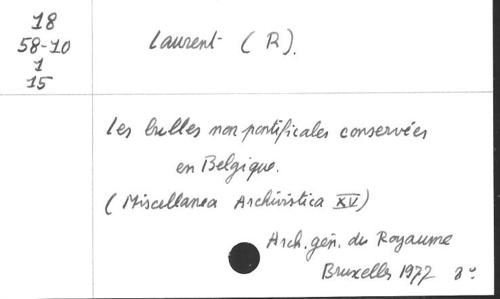 18
58-10
1
15
Laurent (R).
Les bulles non pontificales conservées
en Belgique.
(Miscellanea Archivistica XV)
Arch. gén. du Royaume
Bruxelles 1977 8°